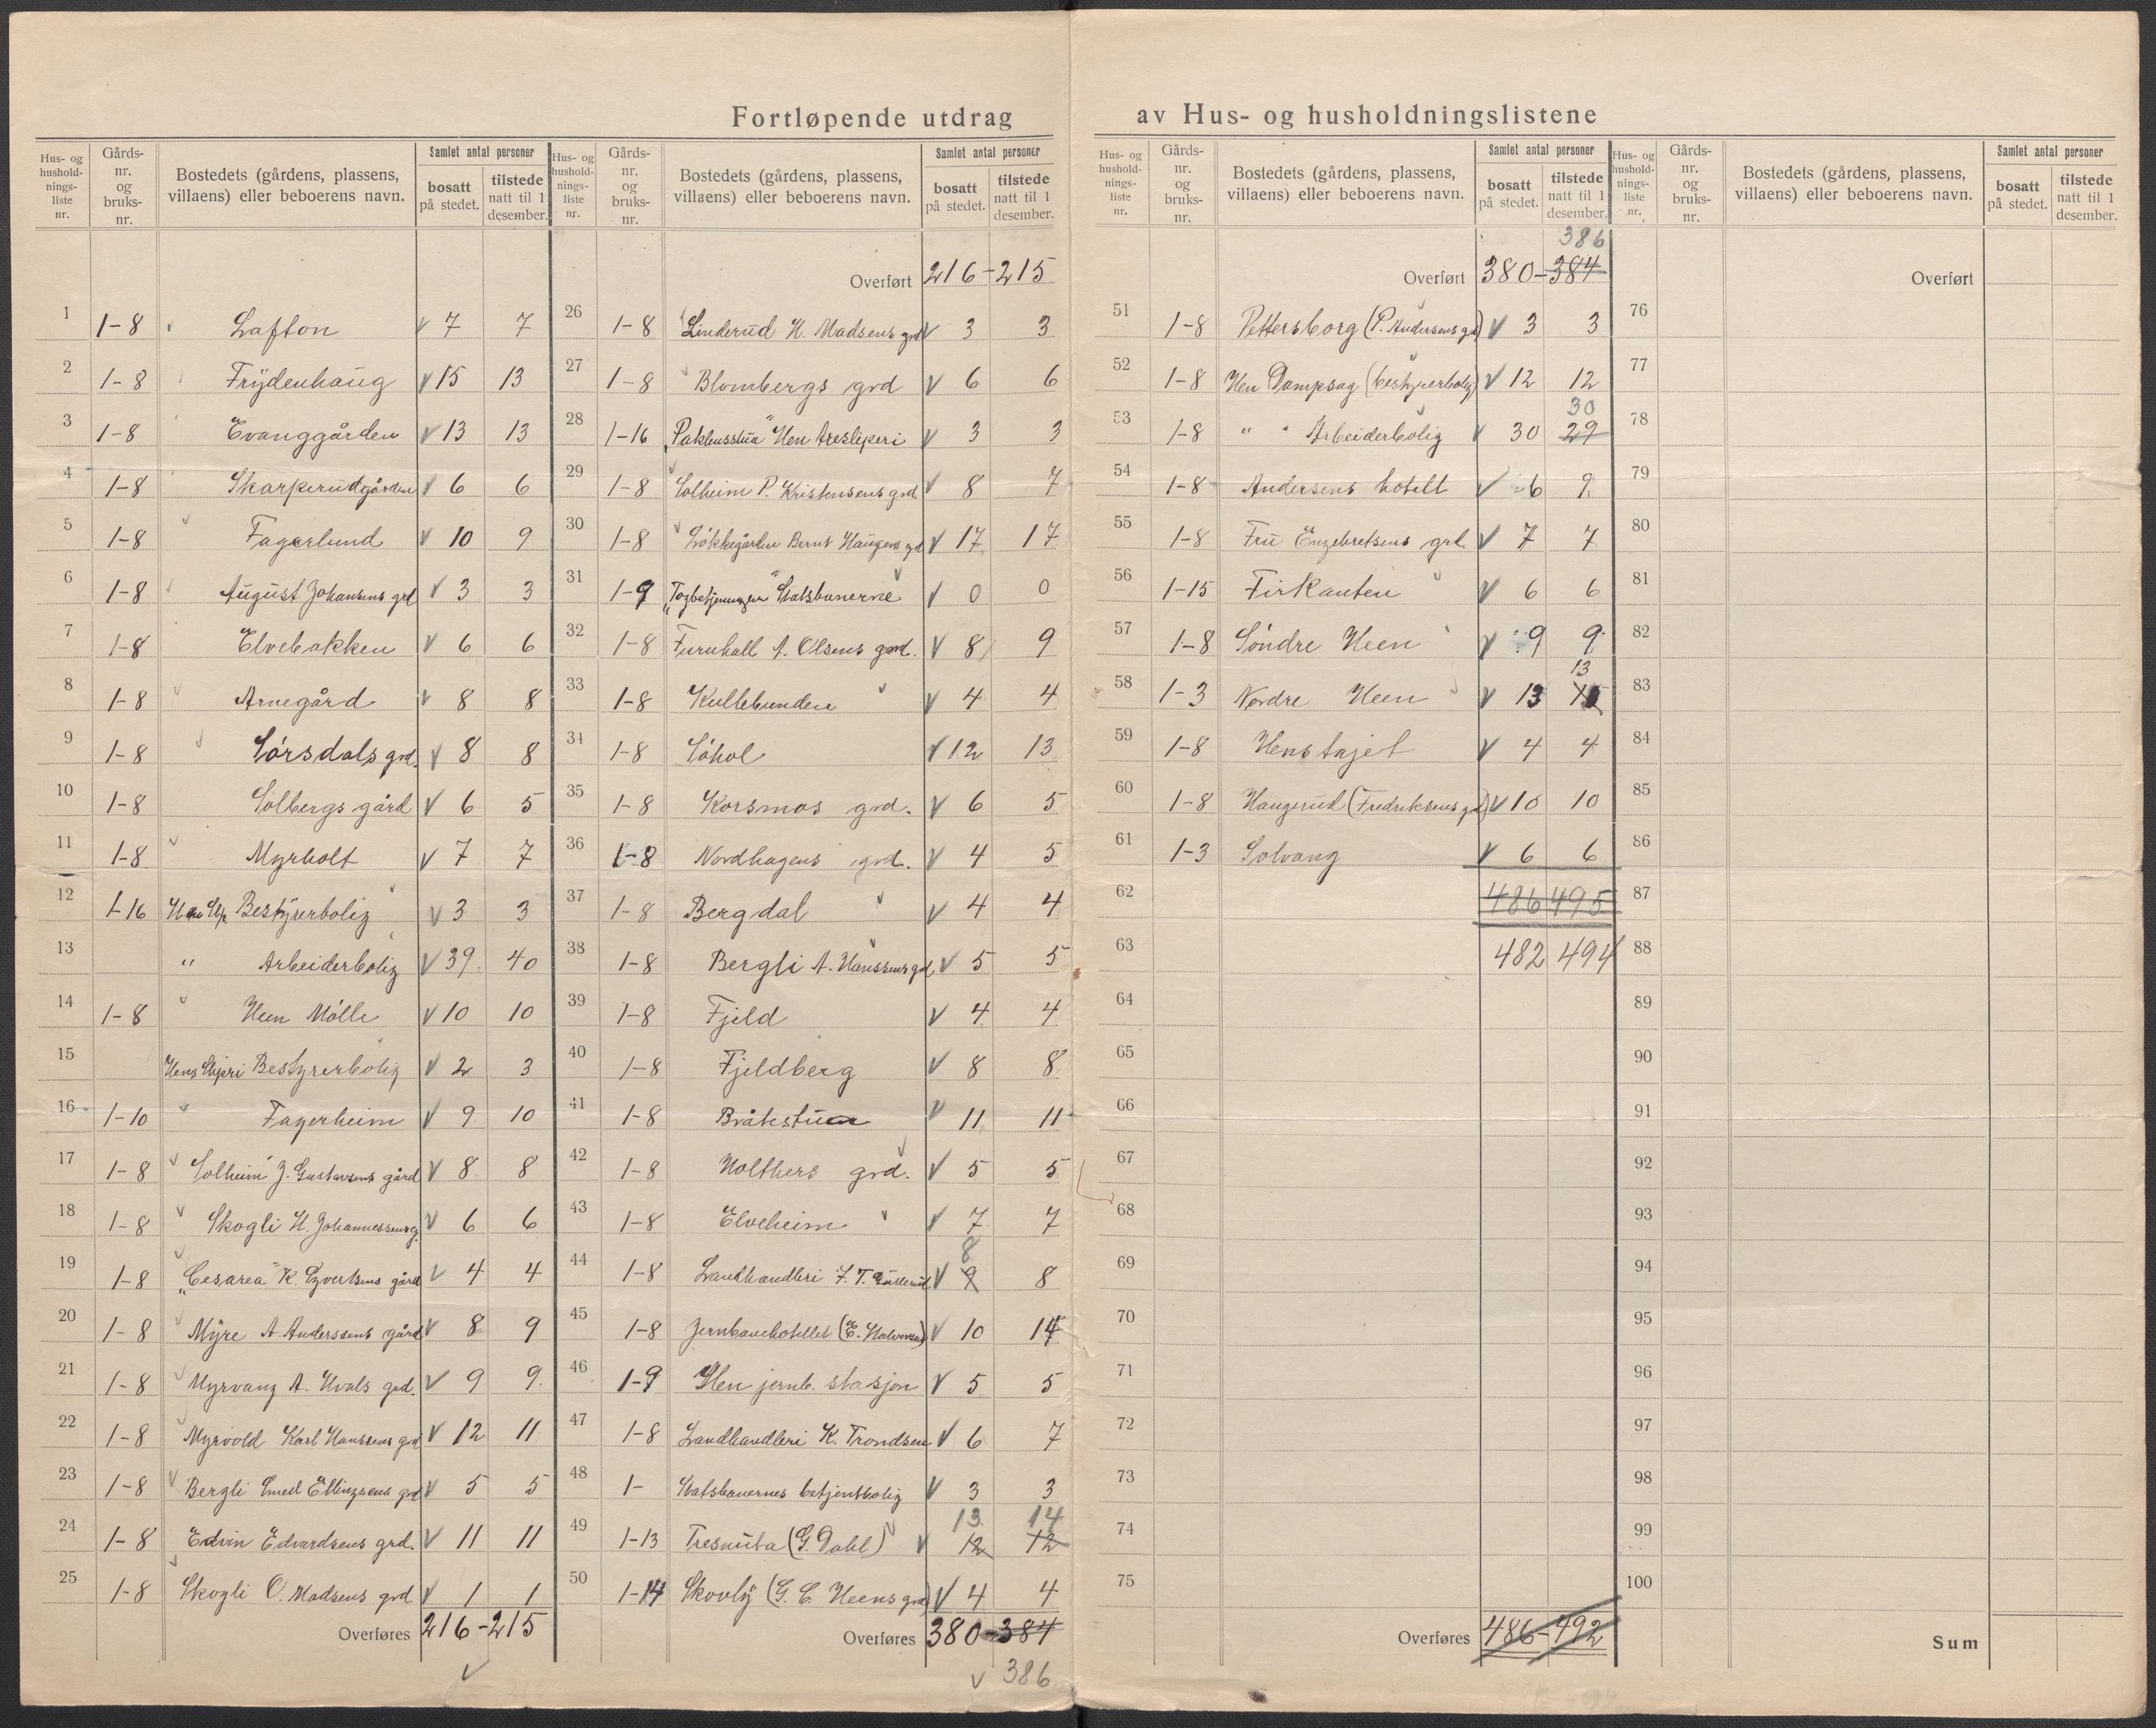 Fortløpende utdrag av Hus- og husholdningslistene
Hus- og hushold-nings-liste nr. | Gårds-nr. og bruks-nr. | Bostedets (gårdens, plassens, villaens) eller beboerens navn. | Samlet antal personer | bosatt på stedet. | tilstede natt til 1 desember.
1 1-8 Lafton 7 7
2 1-8 Frydenhaug 15 13
3 1-8 Evanggården 13 13
4 1-8 Skarperudgården 6 6
5 1-8 Fagerlund 10 9
6 1-8 August Johansens grd 3 3
7 1-8 Elvebakken 6 6
8 1-8 Arnegård 8 8
9 1-8 Sørsdals grd. 8 8
10 1-8 Solbergs gård 6 5
11 1-8 Myrholt 7 7
12 1-16 Hen Slip. Bestyrerbolig 3 3
13 " Arbeiderbolig 39 40
14 1-8 Heen Mølle 10 10
15 Hens Sliperi Bestyrerbolig 2 3
16 1-10 Fagerheim 9 10
17 1-8 Solheim J. Gustavsens gård 8 8
18 1-8 Skogli H. Johannessens g. 6 6
19 1-8 „Cesarea" K. Syvertsens gård 4 4
20 1-8 Myre A. Anderssens gård 8 9
21 1-8 Myrvang A. Hvals grd. 9 9
22 1-8 Myrvold Karl Hanssens grd 12 11
23 1-8 Bergli Emil Ellingsens grd 5 5
24 1-8 Edvin Edvardsens grd. 11 11
25 1-8 Skogli O. Madsens grd. 1 1
Overføres 216-215
Hus- og hushold-nings-liste nr. | Gårds-nr. og bruks-nr. | Bostedets (gårdens, plassens, villaens) eller beboerens navn. | Samlet antal personer | bosatt på stedet. | tilstede natt til 1 desember.
Overført 216-215
26 1-8 Linderud H. Madsens grd 3 3
27 1-8 Blombergs grd 6 6
28 1-16 „Pakhusstua" Hen tresliperi 3 3
29 1-8 Solheim P. Kristensens grd 8 7
30 1-8 Løkkegården Bernt Haugens grd 17 17
31 1-9 „Togbetjeningen" Statsbanerne 0 0
32 1-8 Furuhall A. Olsens grd. 8 9
33 1-8 Kullebunden 4 4
34 1-8 Søhol 12 13
35 1-8 Korsmos grd. 6 5
36 1-8 Nordhagens grd. 4 5
37 1-8 Bergdal 4 4
38 1-8 Bergli A. Hanssens grd. 5 5
39 1-8 Fjeld 4 4
40 1-8 Fjeldberg 8 8
41 1-8 Bråtestuen 11 11
42 1-8 Holthers grd. 5 5
43 1-8 Elveheim 7 7
8
44 1-8 Landhandleri 9 8
45 1-8 Jernbanehotellet (E. Halvorsen) 10 14
46 1-9 Hen jernb. stasjon 5 5
47 1-8 Landhandleri K. Trondsen 6 7
48 1- Statsbanernes betjentbolig 3 3
13 14
49 1-13 Tresnuta (G. Dahl) 12 12
50 1-14 Skovly (G. C. Heens grd) 4 4
Overføres 380-384
386
Hus- og hushold-nings-liste nr. | Gårds-nr. og bruks-nr. | Bostedets (gårdens, plassens, villaens) eller beboerens navn. | Samlet antal personer | bosatt på stedet. | tilstede natt til 1 desember.
386
Overført 380-384
51 1-8 Pettersborg (P. Andersens grd) 3 3
52 1-8 Hen Dampsag (bestyrerbolig) 12 12
30
53 1-8 " " Arbeiderbolig 30 29
54 1-8 Andersens hotell 6 9
55 1-8 Fru Engebretsens grd. 7 7
56 1-15 Firkanten 6 6
57 1-8 Søndre Heen 9 9
13
58 1-3 Nordre Heen 13
59 1-8 Henstajet 4 4
60 1-8 Haugerud (Fredriksens grd) 10 10
61 1-3 Solvang 6 6
62 486 495
63 482 494
64
65
66
67
68
69
70
71
72
73
74
75
Overføres 486-492
Hus- og hushold-nings-liste nr. | Gårds-nr. og bruks-nr. | Bostedets (gårdens, plassens, villaens) eller beboerens navn. | Samlet antal personer | bosatt på stedet. | tilstede natt til 1 desember.
Overført
76
77
78
79
80
81
82
83
84
85
86
87
88
89
90
91
92
93
94
95
96
97
98
99
100
Sum